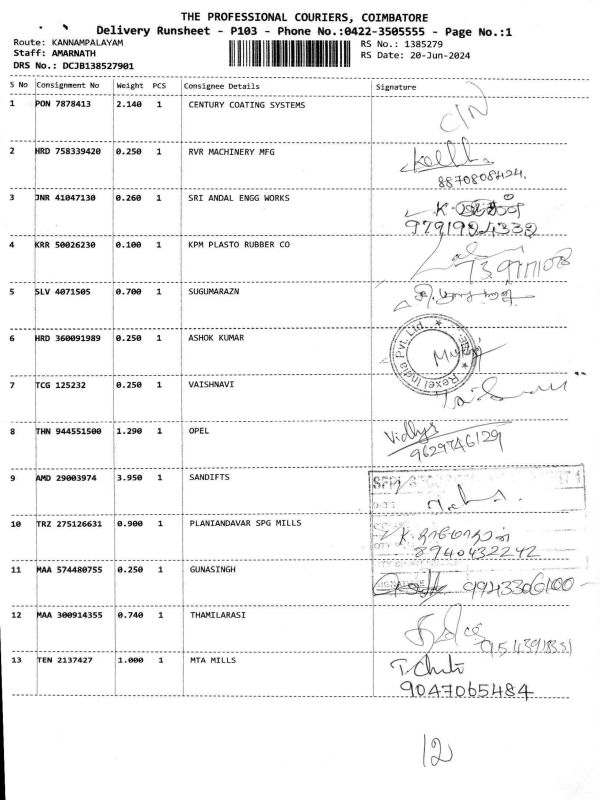 THE PROFESSIONAL COURIERS, COIMBATORE
Delivery Runsheet - P103 - Phone No.:0422-3505555 - Page No.:1
Route: KANNAMPALAYAM
RS No.: 1385279
Staff: AMARNATH
RS Date: 20-Jun-2024
DRS No.: DCJB138527901
S No Consignment No Weight PCS Consignee Details Signature
1 PON 7878413 2.140 1 CENTURY COATING SYSTEMS
C/N
2 HRD 758339420 0.250 1 RVR MACHINERY MFG
8870808424.
3 JNR 41047130 0.260 1 SRI ANDAL ENGG WORKS
9791924332
4 KRR 50026230 0.100 1 KPM PLASTO RUBBER CO
5 SLV 4071505 0.700 1 SUGUMARAZN
6 HRD 360091989 0.250 1 ASHOK KUMAR
Rexel India Pvt. Ltd.
7 TCG 125232 0.250 1 VAISHNAVI
8 THN 944551500 1.290 1 OPEL
Vidhya
9629746129
9 AMD 29003974 3.950 1 SANDIFTS
10 TRZ 275126631 0.900 1 PLANIANDAVAR SPG MILLS
8940432242
11 MAA 574480755 0.250 1 GUNASINGH
9943306100
12 MAA 300914355 0.740 1 THAMILARASI
13 TEN 2137427 1.000 1 MTA MILLS
9047065484
12